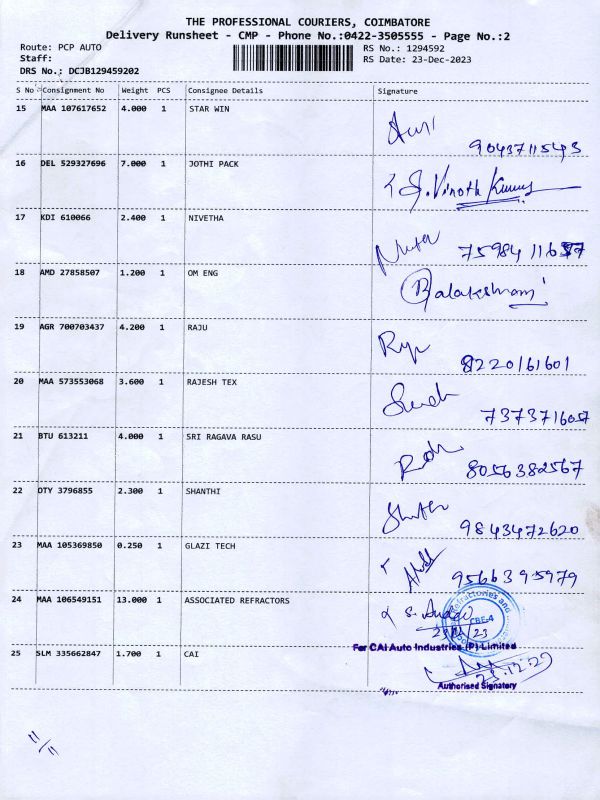 THE PROFESSIONAL COURIERS, COIMBATORE
Delivery Runsheet - CMP - Phone No.:0422-3505555 - Page No.:2
Route: PCP AUTO RS No.: 1294592
Staff: RS Date: 23-Dec-2023
DRS No.: DCJB129459202
S No Consignment No Weight PCS Consignee Details Signature
15 MAA 107617652 4.000 1 STAR WIN
9043711543
16 DEL 529327696 7.000 1 JOTHI PACK
Vinoth Kumar
17 KDI 610066 2.400 1 NIVETHA
18 AMD 27858507 1.200 1 OM ENG
Balakshmani
19 AGR 700703437 4.200 1 RAJU
8220161601
20 MAA 573553068 3.600 1 RAJESH TEX
7373716057
21 BTU 613211 4.000 1 SRI RAGAVA RASU
8056382567
22 DTY 3796855 2.300 1 SHANTHI
9843472620
23 MAA 105369850 0.250 1 GLAZI TECH
9566395979
24 MAA 106549151 13.000 1 ASSOCIATED REFRACTORS
Refractories and
CBE-4
For CAI Auto Industries (P) Limited
25 SLM 335662847 1.700 1 CAI
23.12.23
Authorised Signatory
11/11